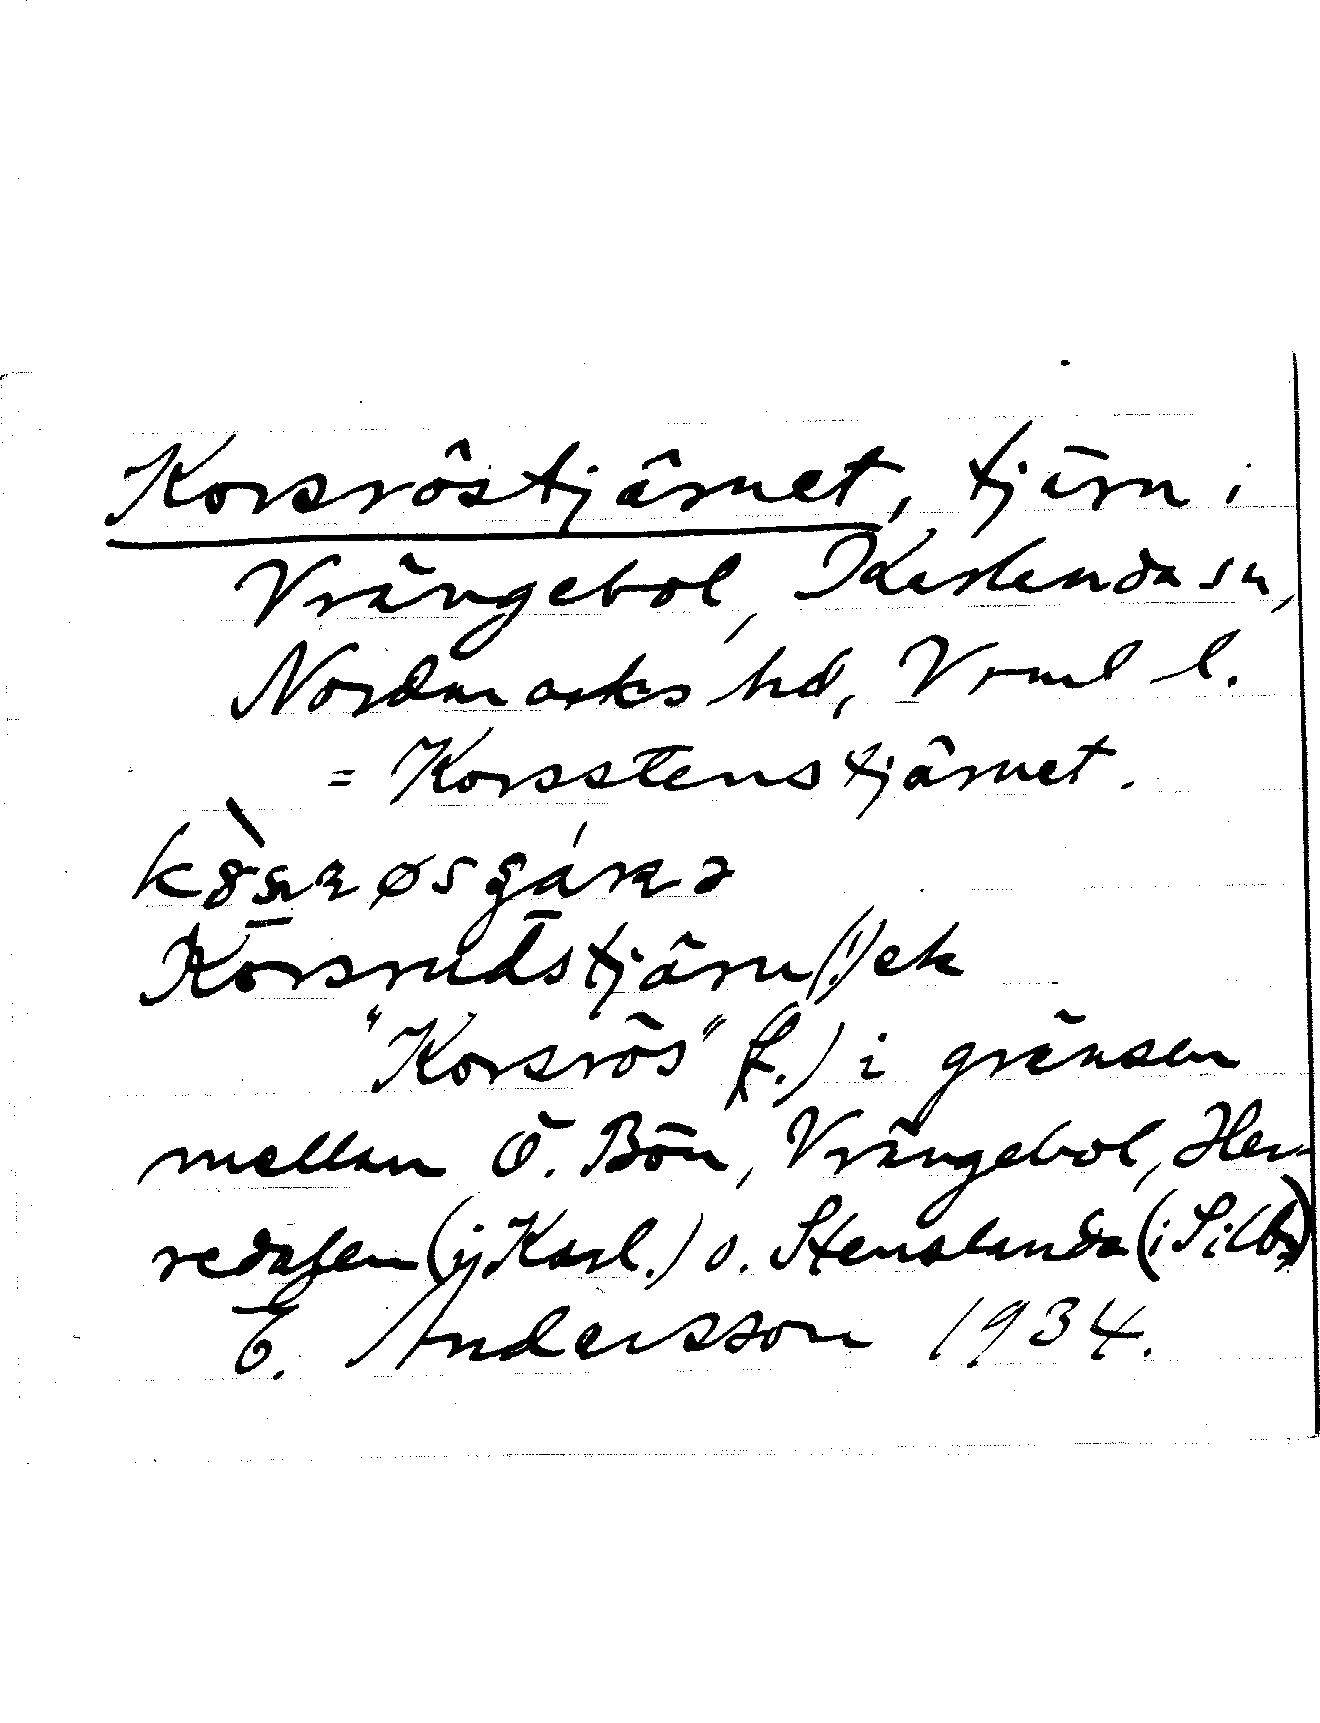 Korsröstjärnet, tjärn i
Vrängebol, Karlanda sn,
Nordmarks hd, Vrml l.
= Korsstenstjärnet.
Korsrudstjärn(!) ek
"Korsrös" (f.) i gränsen
mellan Ö. Bön, Vrängebol, Hen-
redalen (i Karl.) o. Stenslanda (i Silb)
E. Andersson 1934.